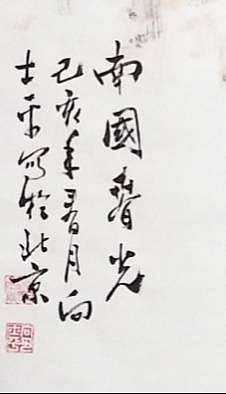 南國春光
己亥年春月向
士平寫於北京